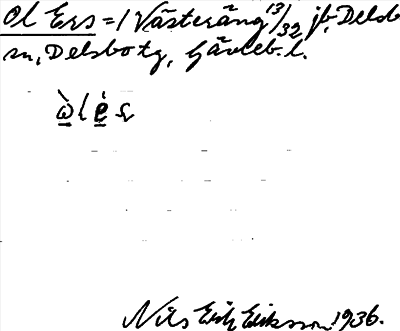 Ol Ers = 1 Västeräng 13/32 jb, Delsb
sn, Delsbo tg, Gävleb. l.
Nils Erik Eriksson 1936.